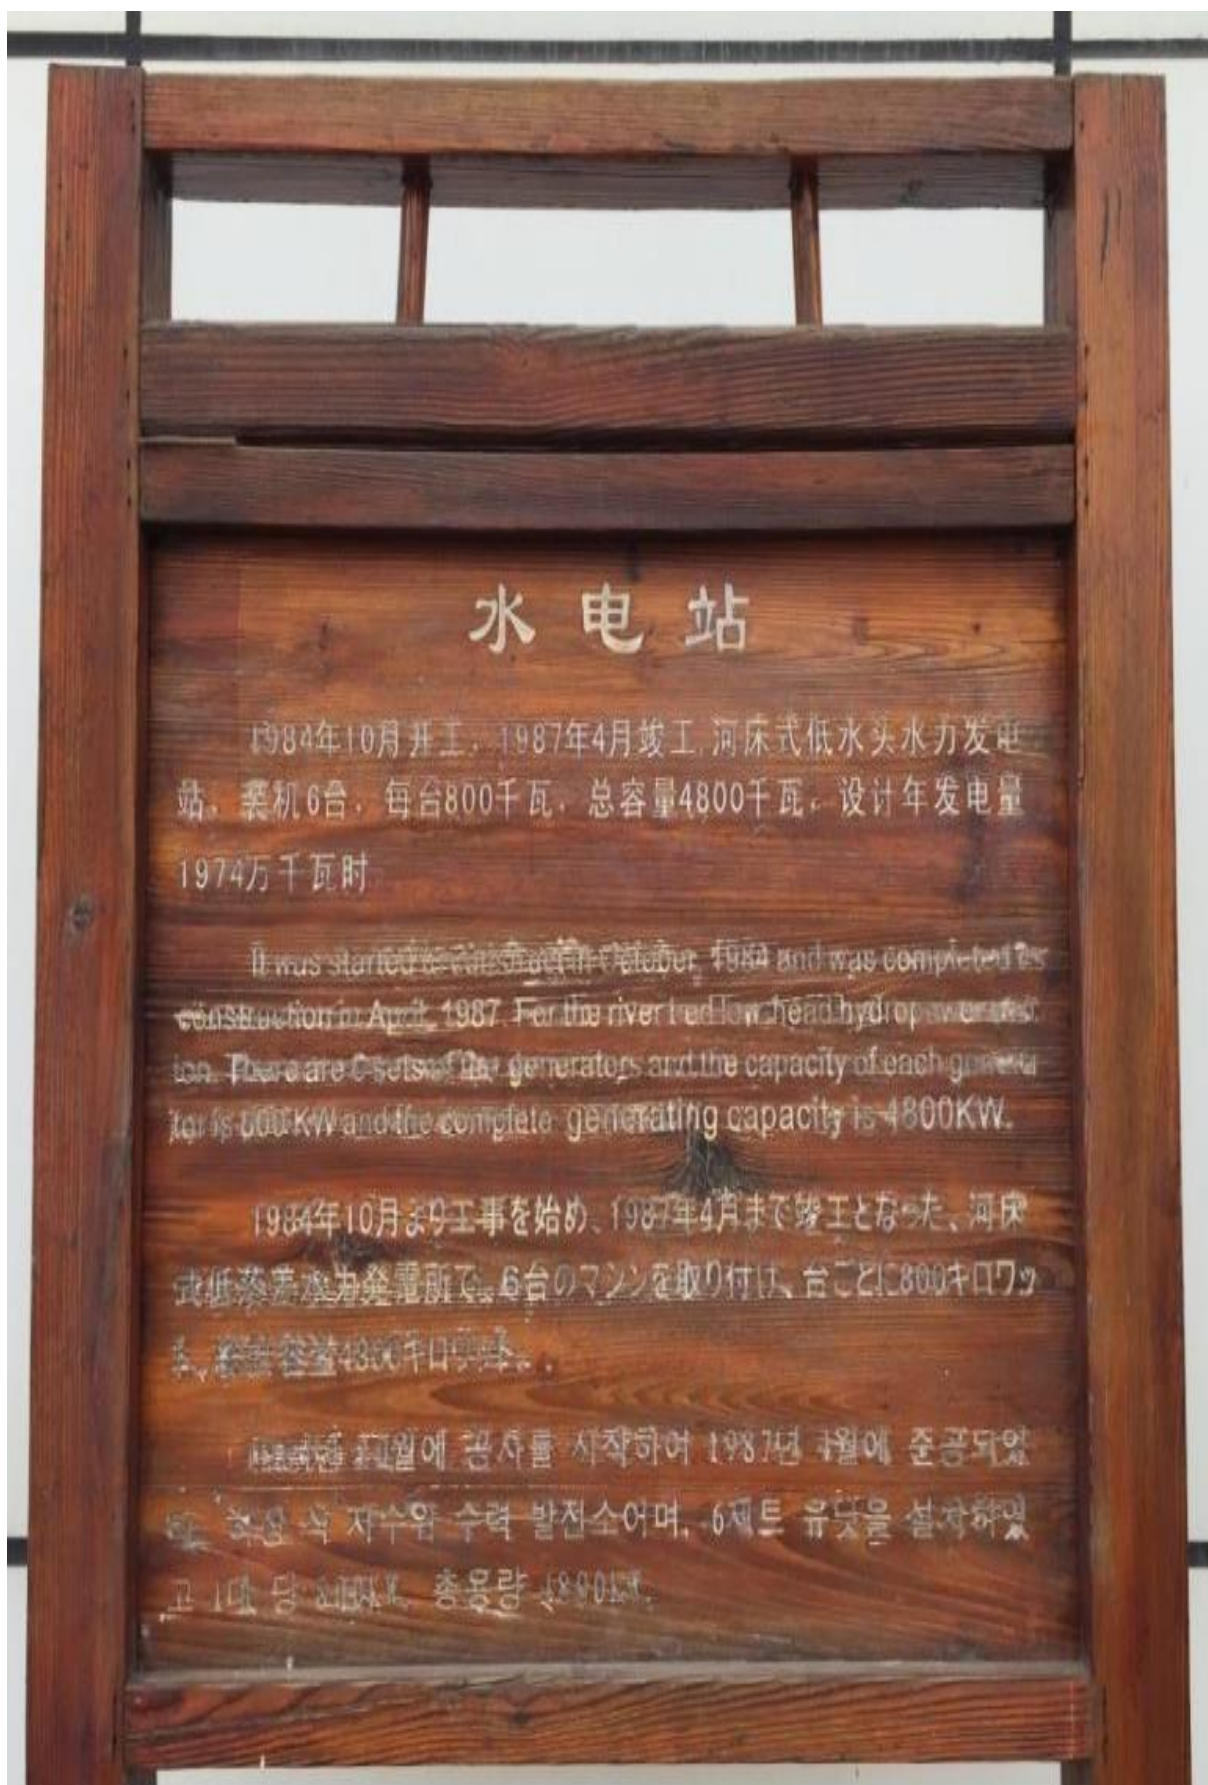 水电站
1984年10月开工，1987年4月竣工，河床式低水头水力发电
站。装机6台，每台800千瓦，总容量4800千瓦。设计年发电量
1974万千瓦时
It was started in October, 1984 and was completed its
construction in April, 1987. For the river bed low head hydropower
There are 6 sets of the generators and the capacity of each genera
tor is 800KW and the complete generating capacity is 4800KW.
1984年10月より工事を始め、1987年4月まで竣工となった、河床
式低落差水力発電所で、6台のマシンを取り付け、台ごとに800キロワッ
ト、容量4800キロワット
10월에 공사를 시작하여 1987년 4월에 준공되었
수력 발전소이며, 6세트 유닛을 설치하였
고 1대 당 총용량 4800KW.